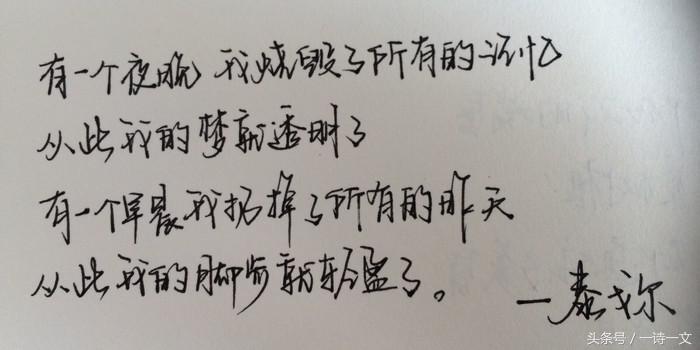 有一个夜晚 我烧毁了所有的记忆
从此我的梦就透明了
有一个早晨我扔掉了所有的昨天
从此我的脚步就轻盈了。
—泰戈尔
头条号 / 一诗一文